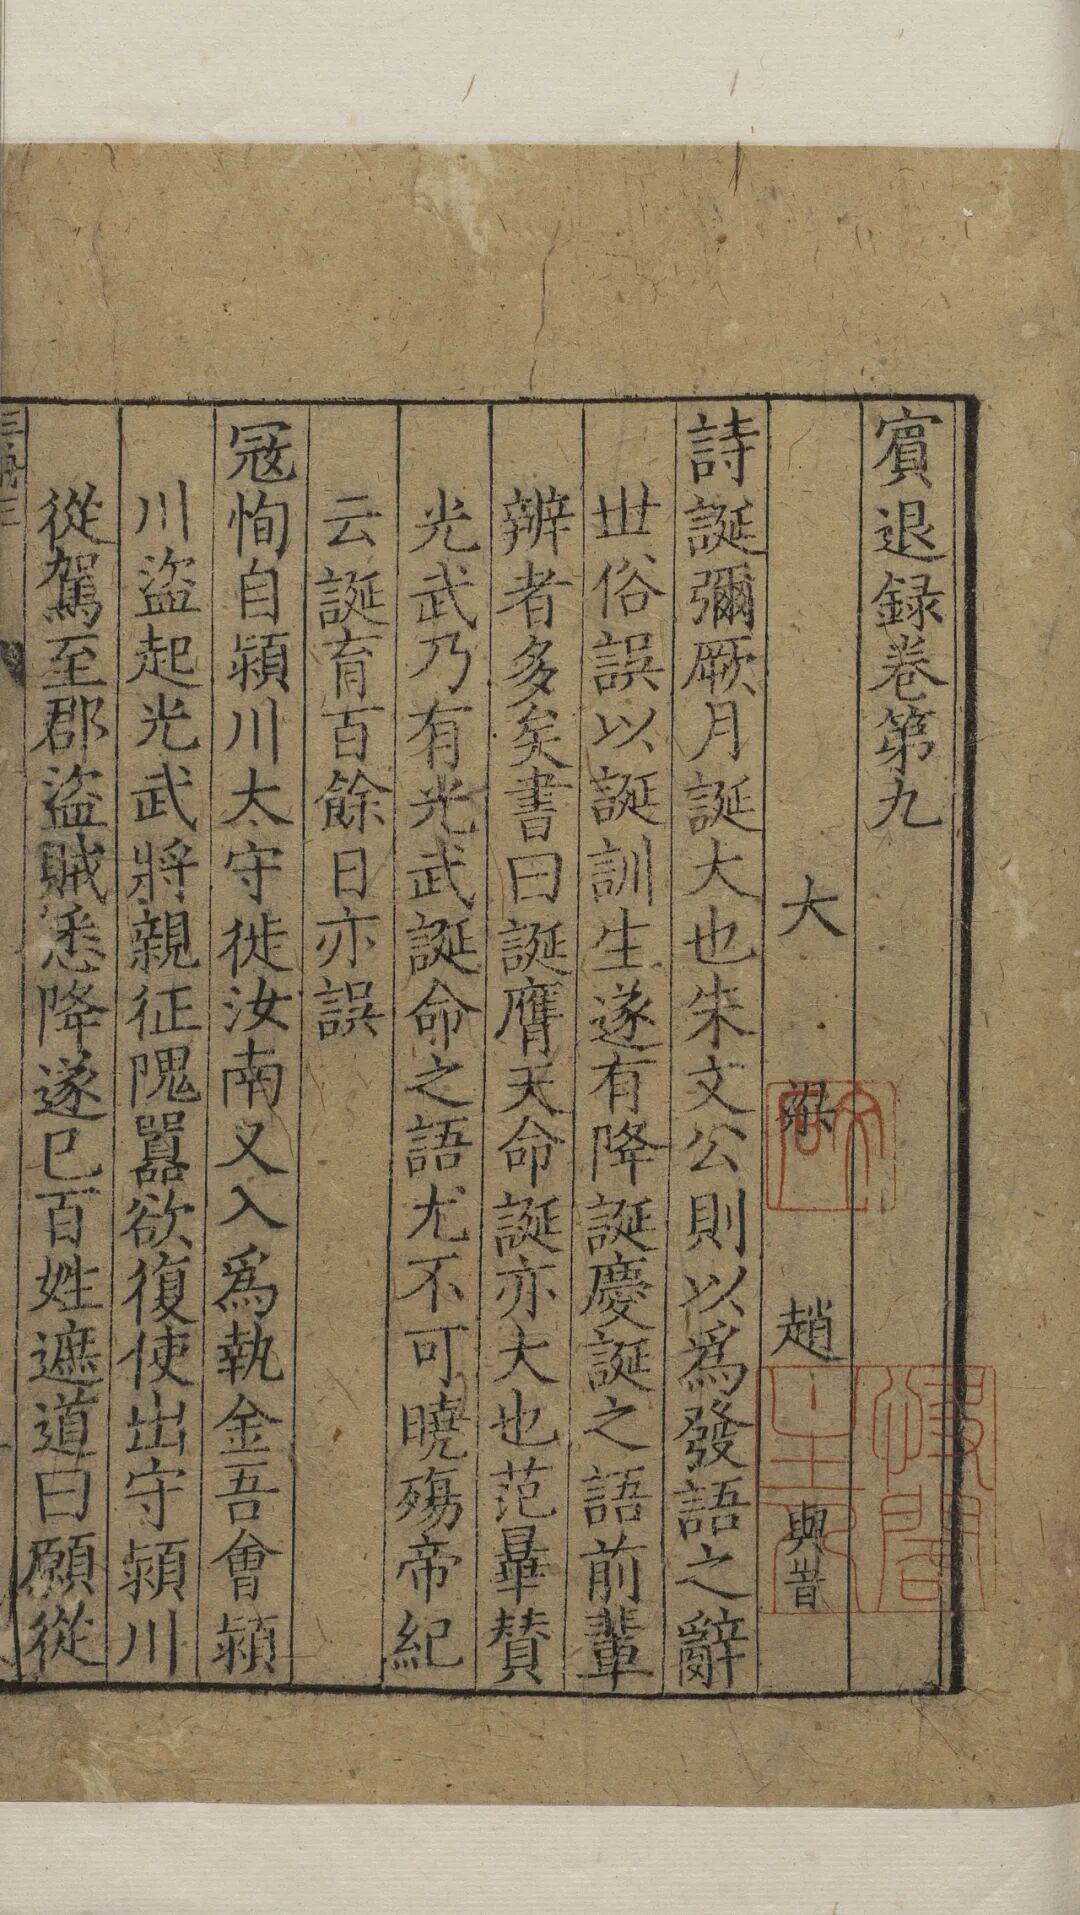 賓退録卷第九
大梁趙與旹
詩誕彌厥月誕大也朱文公則以爲發語之辭
世俗誤以誕訓生遂有降誕慶誕之語前輩
辨者多矣書曰誕膺天命誕亦大也范曄贊
光武乃有光武誕命之語尤不可曉殤帝紀
云誕育百餘日亦誤
冦恂自潁川太守徙汝南又入爲執金吾會潁
川盜起光武將親征隗囂欲復使出守潁川
從駕至郡盜賊悉降遂已百姓遮道曰願從